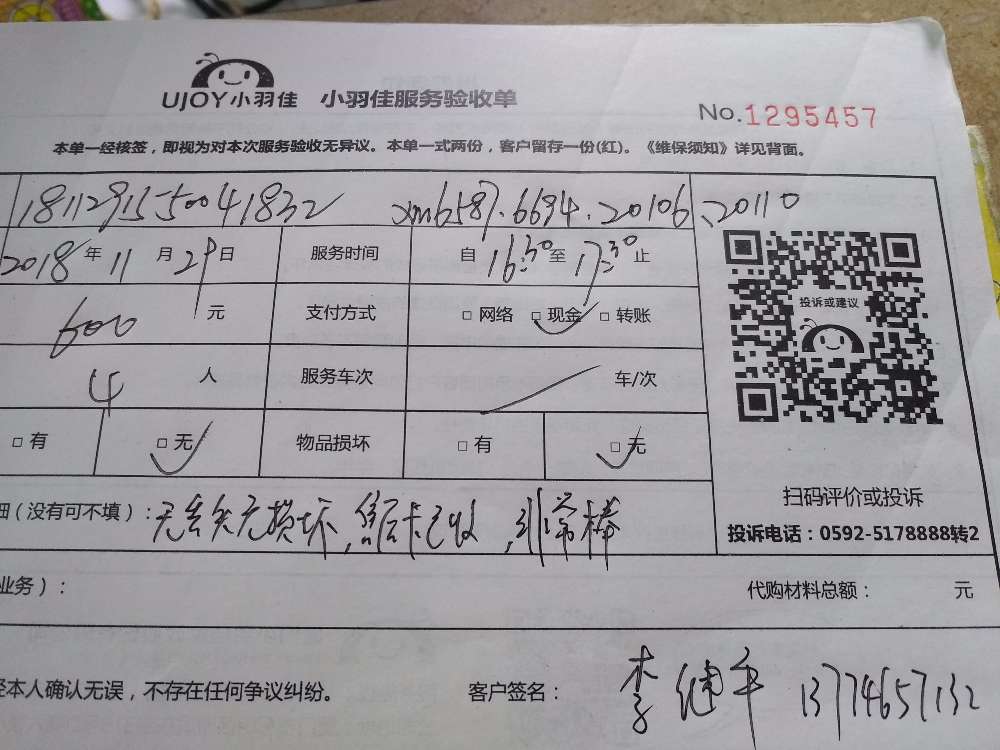 UJOY小羽佳 小羽佳服务验收单
No.1295457
本单一经核签，即视为对本次服务验收无异议。本单一式两份，客户留存一份(红)。《维保须知》详见背面。
181129155004 1832 xm6587.6694.20106、20110
2018年11月29日 服务时间 自16:30至17:30止
600元 支付方式 □网络 □现金 □转账
投诉或建议
4人 服务车次 车/次
□有 □无 物品损坏 □有 □无
扫码评价或投诉
细（没有可不填）：无丢失无损坏，售后卡已收，非常棒
投诉电话：0592-5178888转2
业务）： 代购材料总额： 元
经本人确认无误，不存在任何争议纠纷。 客户签名：李建平 13774657132